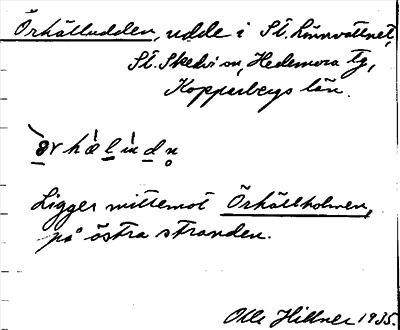 Örhälludden, udde i St. Lönnvattnet,
St. Skedvi sn, Hedemora tg,
Kopparbergs län.
Ligger mittemot Örhällholmen,
på östra stranden.
Olle Hillner 1935.